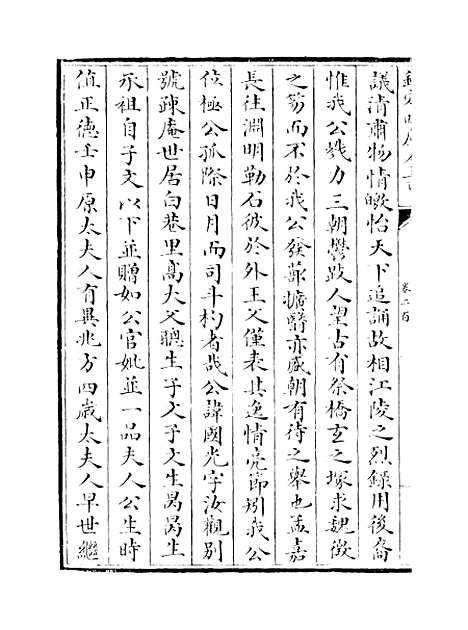 欽定四庫全書
卷二百
議清肅物情皦怡天下追誦故相江陵之烈錄用後裔
惟我公㦿力三朝鬱跂人望古有祭橋玄之塚求魏徵
之笏而不於我公發蔀擴翳亦盛朝有待之舉也孟嘉
長往淵明勒石彼於外王父僅表其逸情亮節矧我公
位極公孤際日月而司斗杓者哉公諱國光字汝觀別
號疎庵世居白巷里高大父聰生子文子文生曷曷生
承祖自子文以下並贈如公官妣並一品夫人公生時
值正德壬申原太夫人有異兆方四歲太夫人早世繼